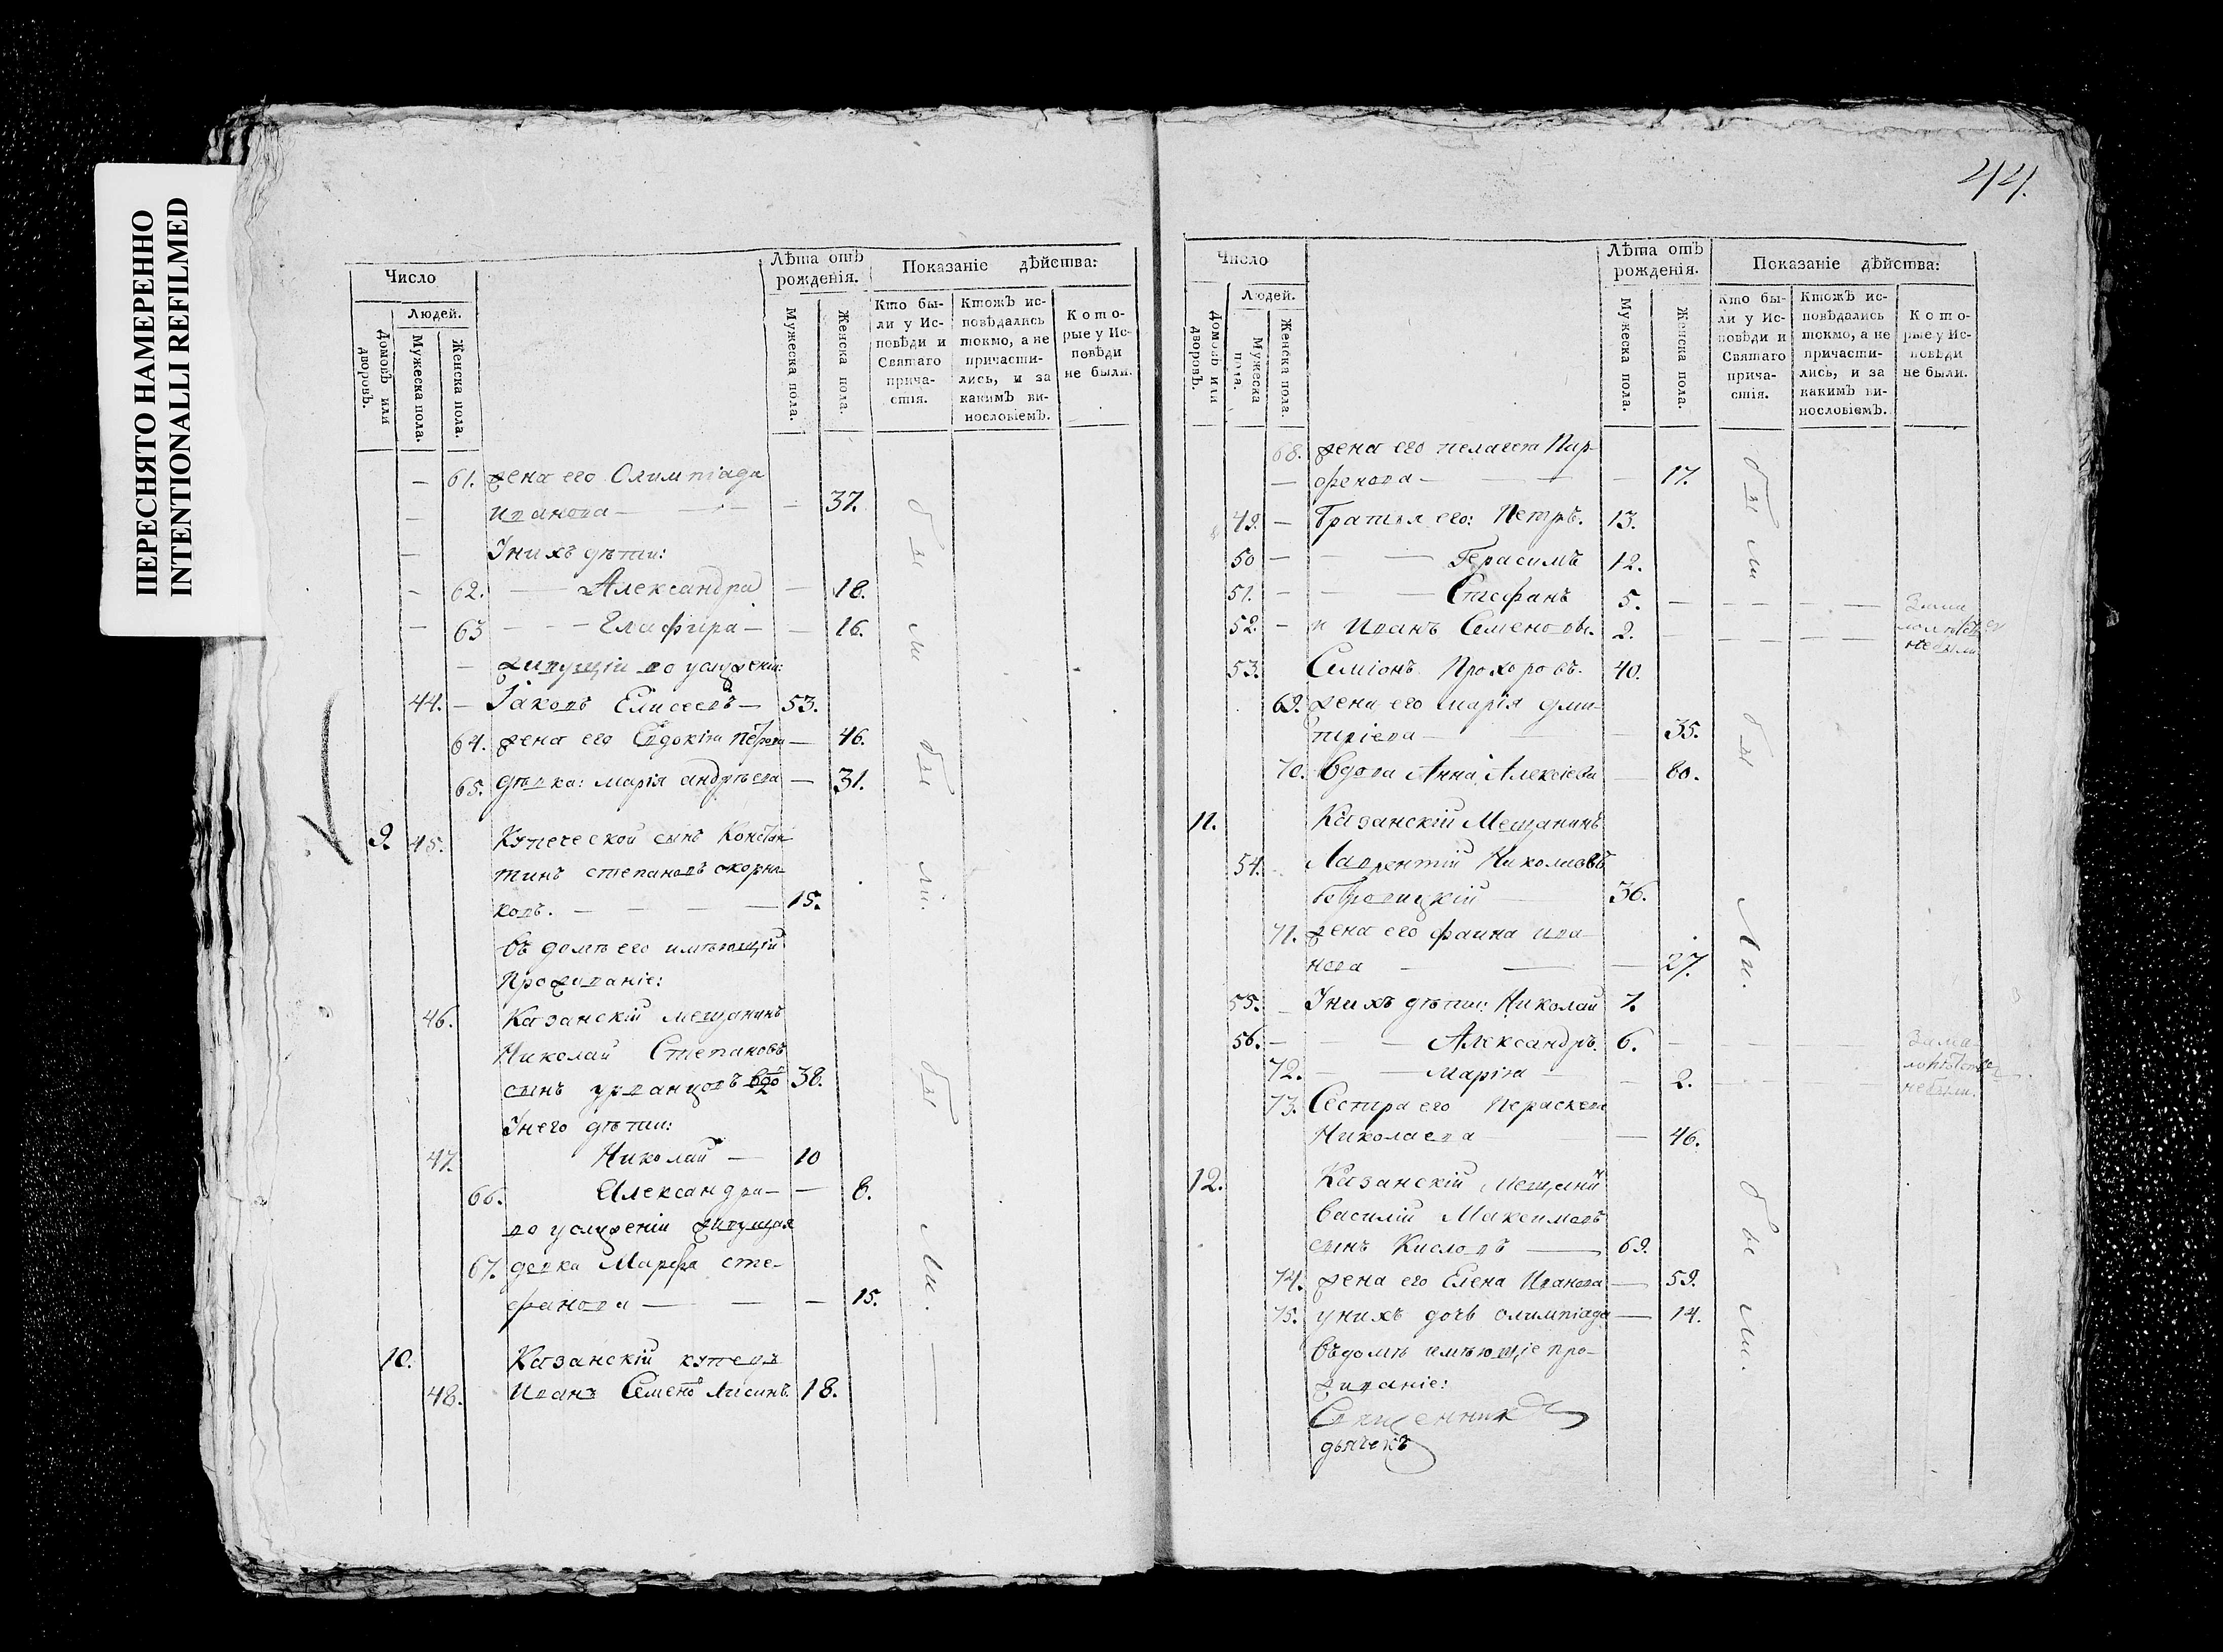 ПЕРЕСНЯТО НАМЕРЕННО
INTENTIONALLI REFILMED
Число
Людей.
Домовъ или дворовъ.
Мужеска пола.
Женска пола.
Лѣта отъ рожденія.
Мужеска пола.
Женска пола.
Показаніе дѣйства:
Кто бы-
ли у Ис-
повѣди и
Святаго
прича-
стія.
Ктожъ ис-
повѣдались
токмо, а не
причасти-
лись, и за
какимъ ви-
нословіемъ.
Кото-
рые у Ис-
повѣди
не были.
— 61. жена его Олимпіада
— Иванова — — 37.
— Унихъ дѣти:
— 62. — Александра — 18.
— 63 — — Глафира — — 16.
— живущіи во услуженіи:
44. — Іаковъ Елисеевъ — 53.
64. жена его Евдокіа — 46.
65. дѣвка: марія андрѣева — 31.
9. 45. Купеческой сынъ Констан
тинъ степановъ скорня
ковъ. — — — — 15.
въ домѣ его имѣющіи
Проживаніе:
46. Казанскіи мещанинъ
Николаи Степановъ
сынъ урванцовъ вдо 38.
Унего дѣти:
47. Николаи — 10
66. Александра — — 8.
во услуженіи живущая
67. девка Марфа сте-
фанова — — — 15.
10. Казанскіи купецъ
48. Иванъ Семено Лисинъ. 18.
бы
ли
бы
ли.
бы
Ли.
44.
Число
Людей.
Домовъ или дворовъ.
Мужеска пола.
Женска пола.
Лѣта отъ рожденія.
Мужеска пола.
Женска пола.
Показаніе дѣйства:
Кто бы-
ли у Ис-
повѣди и
Святаго
прича-
стія.
Ктожъ ис-
повѣдались
токмо, а не
причасти-
лись, и за
какимъ ви-
нословіемъ.
Кото-
рые у Ис-
повѣди
не были.
68. жена его пелагеа Пар-
— фенова — — — — 17.
49. — Братья его: Петръ. 13.
50 — — — Герасимъ 12.
51. — — — Стефанъ 5. — — — — —
52. — и Иванъ Семеновы. 2. — — — — —
За ма
лолѣтст
небыли.
53. Симіонъ Прохоровъ. 40.
69. жена его марія дми-
тріева — — 35.
70. Вдова Анна Алексіева — 80.
11. Казанскіи Мещанинъ
54. Лаврентіи Николаевъ
36.
71. жена его фаина ива-
нова — — — 27.
55. — Унихъ дѣти: Николаи 7.
56. — — — Александръ. 6. — — — —
72. — — Маріа — — 2. — — —
За ма
лолѣтст
небыли.
73. Сестра его Параскева
Николаева — — 46.
12. Казанскіи мещани
Василіи Максимовъ
сынъ Кисловъ — 69.
74. жена его Елена Иванова — 59.
75. унихъ дочь олимпіада — 14.
въдомѣ имѣющіе про-
живаніе:
Священникъ
дьячекъ
бы
ли
бы
Ли.
бы
ли.